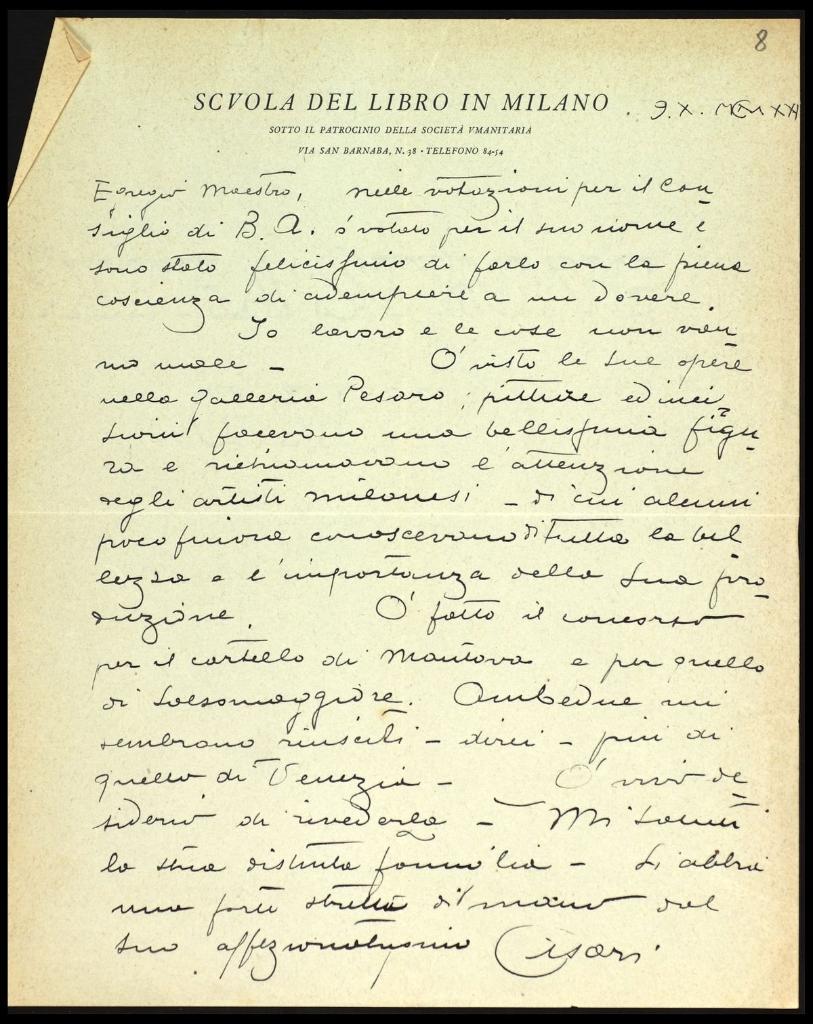 8
SCVOLA DEL LIBRO IN MILANO
SOTTO IL PATROCINIO DELLA SOCIETÀ VMANITARIA
VIA SAN BARNABA, N. 38 - TELEFONO 84-54
9. X.
Egregio Maestro, nelle votazioni per il Con
siglio di B. A. ò votato per il suo nome e
sono stato felicissimo di farlo con la piena
coscienza di adempiere a un dovere.
Io lavoro e le cose non van
no male - Ò visto le sue opere
nella galleria Pesaro; pitture ed inci
sioni facevano una bellissima figu
ra e richiamavano l'attenzione
degli artisti milanesi - di cui alcuni
poco finora conoscevano di tutta la bel
lezza e l'importanza della sua pro
duzione. Ò fatto il concorso
per il cartello di Mantova e per quello
di Salsomaggiore. Ambedue mi
sembrano riusciti - direi - più di
quello di Venezia - Ò vivo de
siderio di rivederla - Mi saluti
la sua distinta famiglia - Si abbia
una forte stretta di mano dal
suo affezionatissimo Cisari